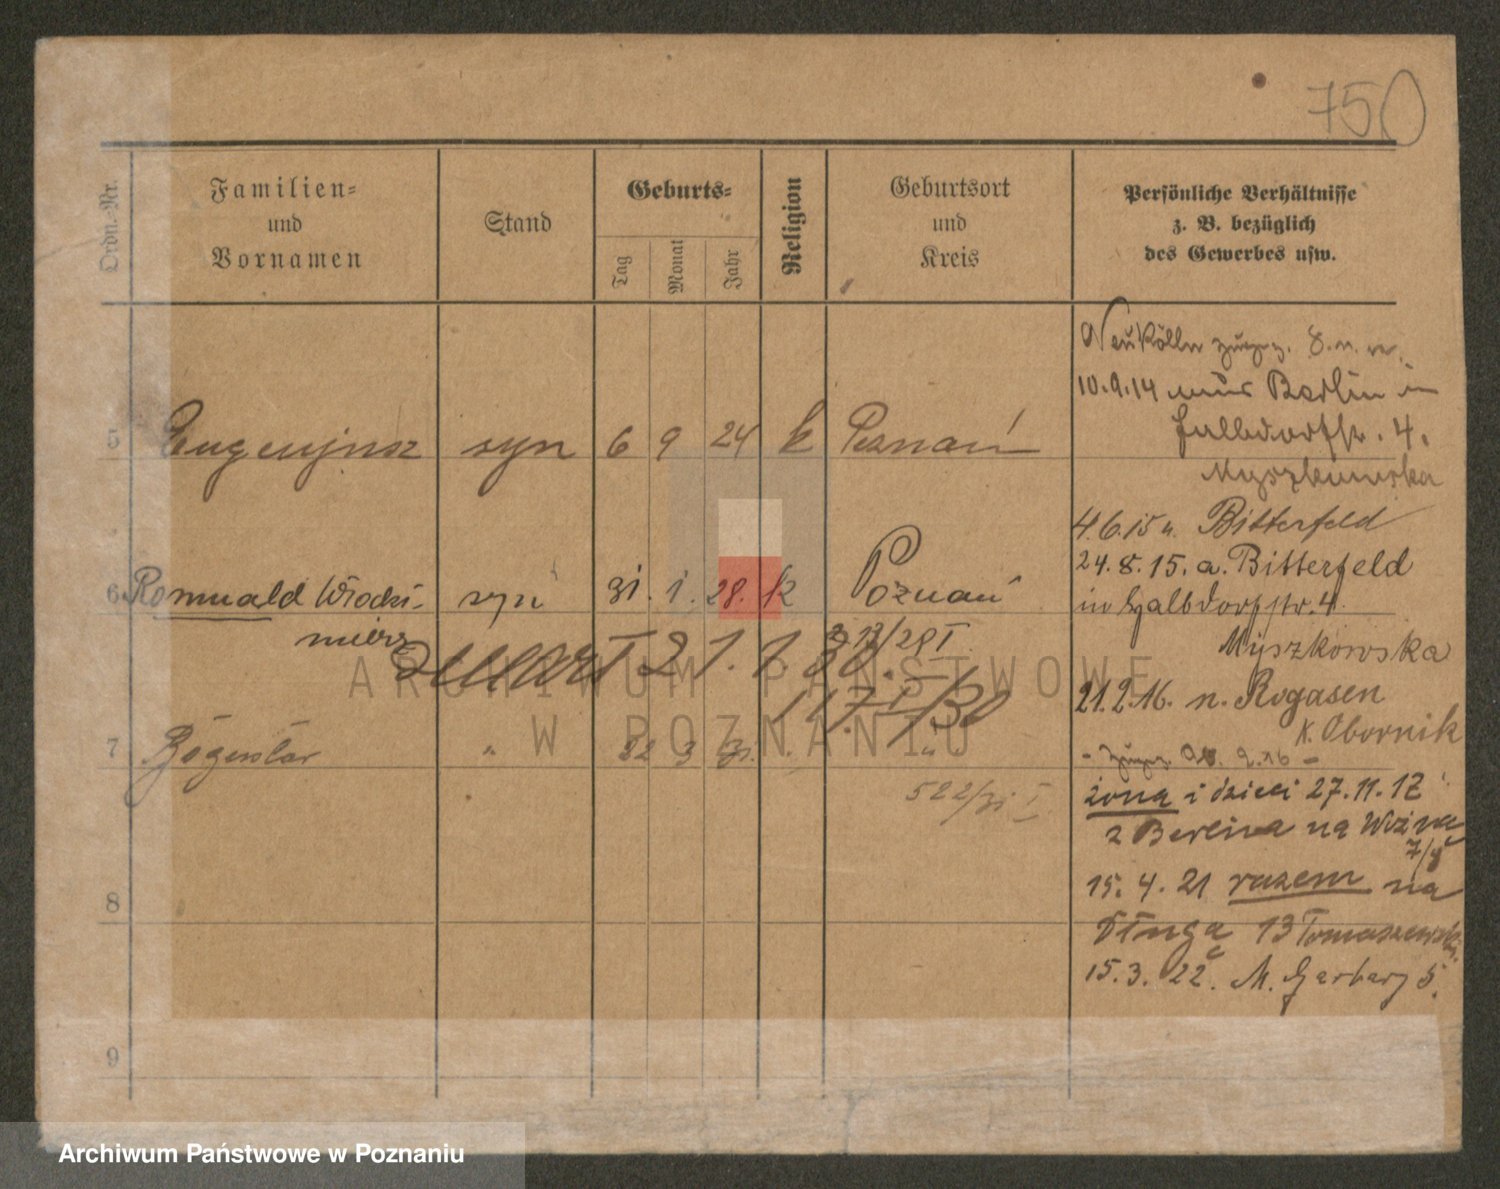 750
Ordn.-Nr.
Familien-
und
Vornamen
Stand
Geburts-
Tag
Monat
Jahr
Religion
Geburtsort
und
Kreis
Persönliche Verhältnisse
z. B. bezüglich
des Gewerbes usw.
Neukölln
10.9.14 Berlin in
4.
5 Eugenjusz syn 6 9 24 k Poznań
Myszkowska
4.6.15 n. Bitterfeld
24.8.15. a. Bitterfeld
6 Romuald Włodzi- syn 31. 1. 28. k Poznań
mierz
in Halbdorfstr. 4.
Myszkowska
umarł 21.1.30.
117/I/30
21.2.16. n. Rogasen
K. Obornik
7 " 3 31. "
522/31 I
żona i dzieci 27.11.17
z Berlina na Woźna
7/8
15. 4. 21 razem na
8
Długa 13 Tomaszewski
15. 3. 22. M. Garbary 5.
9
ARCHIWUM PAŃSTWOWE
W POZNANIU
Archiwum Państwowe w Poznaniu